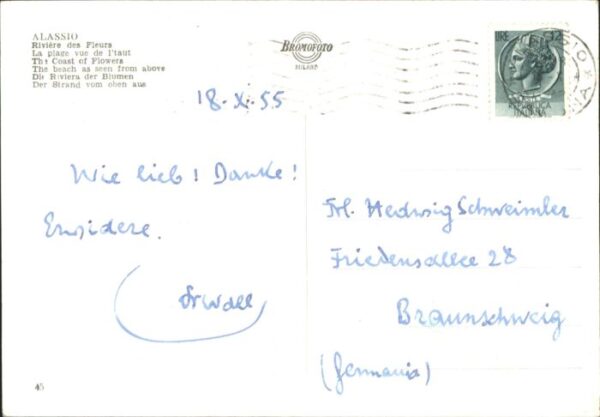 ALASSIO
Rivière des Fleurs
La plage vue de l'taut
The Coast of Flowers
The beach as seen from above
Die Riviera der Blumen
Der Strand vom oben aus
BROMOFOTO
MILANO
LIRE 12
18.XI.55
Wie lieb! Danke!
Frl. Hedwig Schweimler
Friedensallee 28
Braunschweig
(Germania)
45